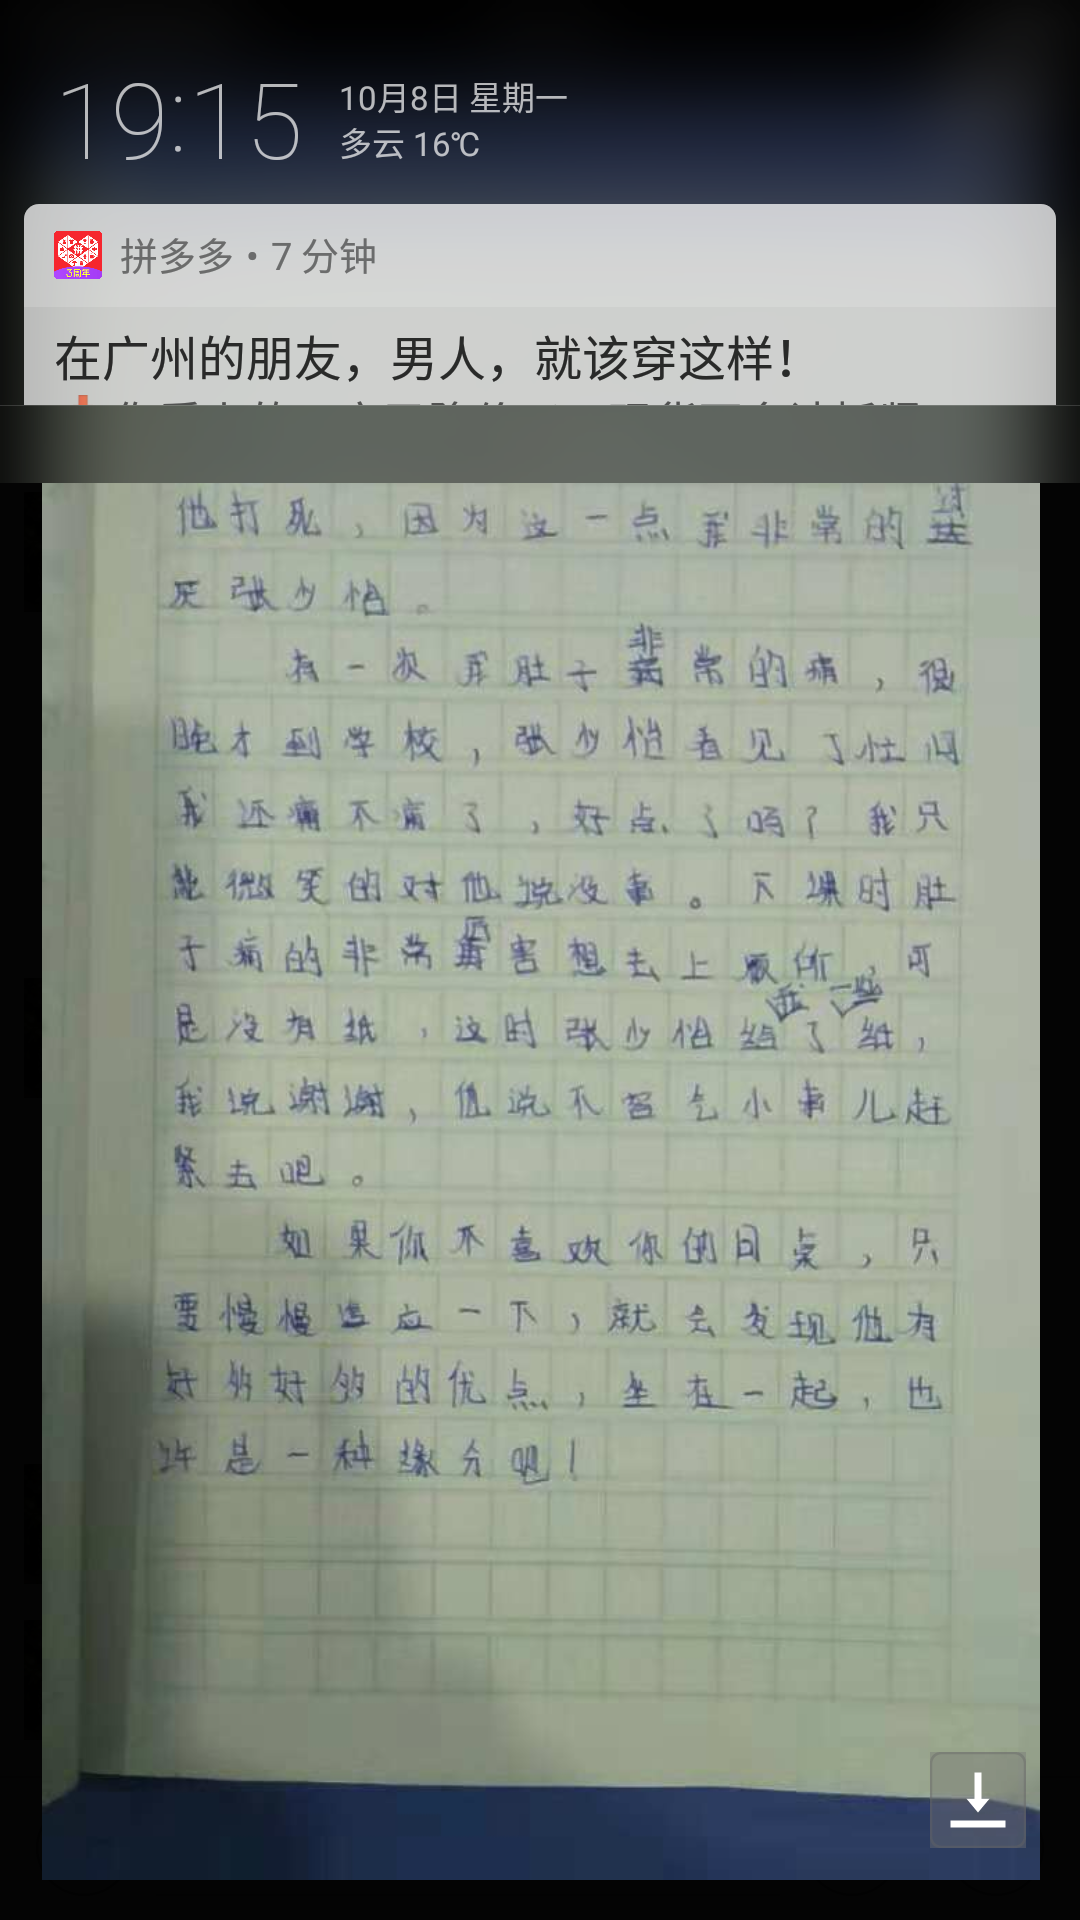 19:15
10月8日 星期一
多云 16℃
拼多多 • 7 分钟
在广州的朋友，男人，就该穿这样！
他打死，因为这一点我非常的讨
厌张少怡。
有一次我肚子非常的痛，很
晚才到学校，张少怡看见了忙问
我还痛不痛了，好点了吗？我只
能微笑的对他说没事。下课时肚
子痛的非常厉害想去上厕所，可
是没有纸，这时张少怡给我了一些纸，
我说谢谢，他说不客气小事儿赶
紧去吧。
如果你不喜欢你的同桌，只
要慢慢适应一下，就会发现他有
好多好多的优点，坐在一起，也
许是一种缘分吧！